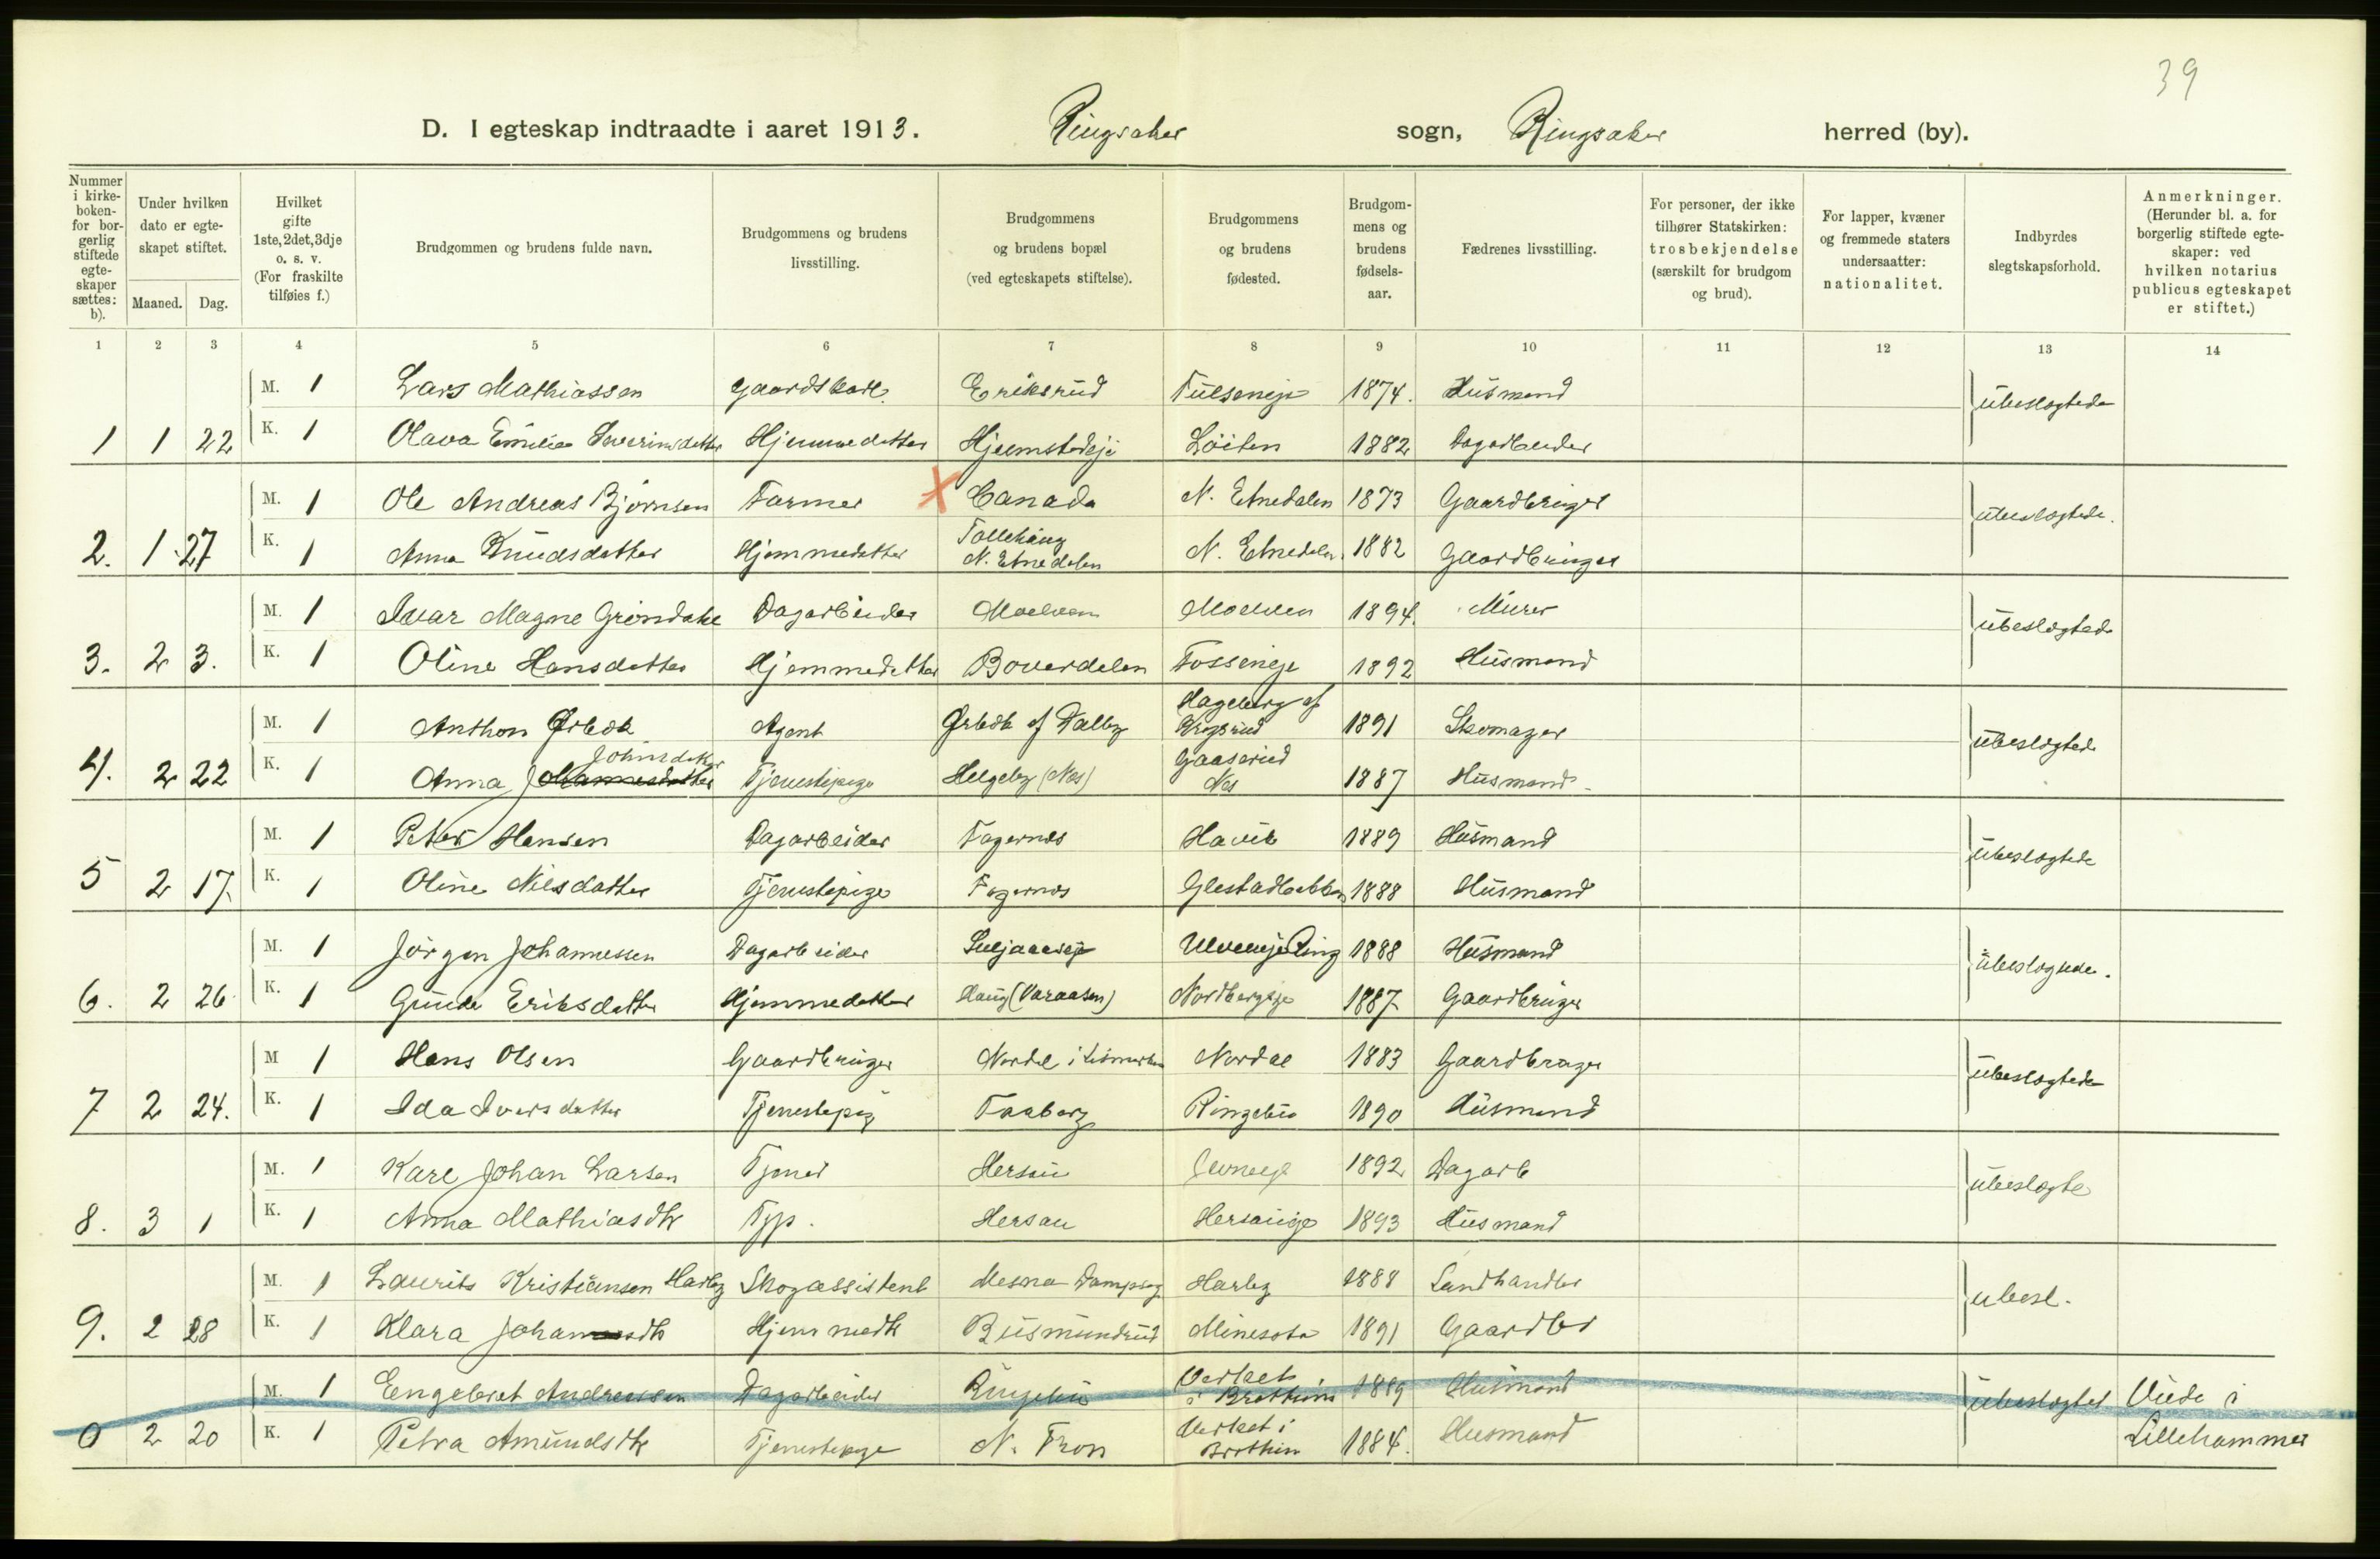 39
D. I egteskap indtraadte i aaret 1913. Ringsaker sogn, Ringsaker herred (by).
Nummer i kirke-boken- for bor-gerlig stiftede egte-skaper sættes: b).
Under hvilken dato er egte-skapet stiftet.
Maaned. Dag.
Hvilket gifte 1ste, 2det, 3dje o. s. v. (For fraskilte tilføies f.)
Brudgommen og brudens fulde navn.
Brudgommens og brudens livsstilling.
Brudgommens og brudens bopæl (ved egteskapets stiftelse).
Brudgommens og brudens fødested.
Brudgom-mens og brudens fødsels-aar.
Fædrenes livsstilling.
For personer, der ikke tilhører Statskirken: trosbekjendelse (særskilt for brudgom og brud).
For lapper, kvæner og fremmede staters undersaatter: nationalitet.
Indbyrdes slegtskapsforhold.
Anmerkninger. (Herunder bl. a. for borgerlig stiftede egte-skaper: ved hvilken notarius publicus egteskapet er stiftet.)
1 2 3 4 5 6 7 8 9 10 11 12 13 14
M. 1 Lars Mathiassen Gaardskarl. Eriksrud 1874. Husmand ubeslægtede
1 1 22 K. 1 Olava Emilie Severinsdatter Hjemmedatter Hjelmstadeje Löiten 1882 Dagarbeider
M. 1 Ole Andreas Bjørnsen Farmer X Canada N. Etnedalen 1873 Gaardbruger ubeslægtede.
2. 1 27 K. 1 Anna Knudsdatter Hjemmedatter N. Etnedalen N. Etnedalen 1882 Gaardbruger
M. 1 Ivar Magne Grøndahl Dagarbeider Moelven Moelven 1894. Murer ubeslægtede
3. 2 3. K. 1 Oline Hansdatter Hjemmedatter Boverdalen Fosseneje 1892 Husmand
M. 1 Anthon Ørbæk Agent Ørbæk af Dalby Hageberg af Krogsrud 1891 Skomager ubeslægtede
4. 2 22 K. 1 Anna Johannesdatter Johnsdatter Tjenestepige Helgeby (Nes) Gaaserud Nes 1887 Husmand
M. 1 Peter Hansen Dagarbeider Fagernæs Havik 1889 Husmand ubeslægtede
5 2 17. K. 1 Oline Nilsdatter Tjenestepige Fagernæs Glestadbakken 1888 Husmand
M. 1 Jörgen Johannessen Dagarbeider Ulveneje Ring 1888 Husmand ubeslægtede.
6. 2 26 K. 1 Eriksdatter Hjemmedatter Haug (Varaasen) Nordbergeje 1887 Gaardbruger
M 1 Hans Olsen Gaardbruger Nordal i Nordal 1883 Gaardbruger ubeslægtede
7 2 24. K. 1 Ida Iversdatter Tjenestepig Faaberg Ringebu 1890 Husmand
M. 1 Karl Johan Larsen Tjener Hersau 1892 Dagarb ubeslægte
8. 3 1 K. 1 Anna Mathiasdtr Tjp. Hersau Hersaueje 1893 Husmand
M. 1 Laurits Kristiansen Harby Skogassistent Mesna Dampsag Harby 1888 Landhandler ubesl.
9. 2 28 K. 1 Klara Johansdtr Hjemmedtr Busmundrud Minesota 1891 Gaardbr
M. 1 Engebret Andreassen Dagarbeider Ringebu Verket i Brøttum 1889 Husmand ubeslægtet Viede i
0 2 20 K. 1 Petra Amundsdtr Tjenestepige N. Fron Verket i Brøttum 1884. Husmand Lillehammer